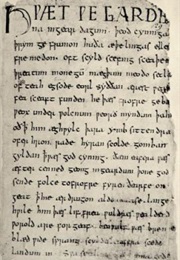 HǷÆT ǷE GARDE
na ingear dagum. þeod cyninga
þrym ge frunon huða æþelingas elle
fre medon. oft scyld scefing sceaþe
þreatum monegū mægþum meodo setla
of teah egsode eorl syððan ærest ƿear
feasceaft funden he þæs frofre geba
ƿeox under ƿolcnum ƿeorð myndum þah
oð þ him æghƿylc þara ymb sittendra
ofer hron rade hyran scolde gomban
gyldan þ ƿæs god cyning. ðæm eafera ƿæs
æfter cenned geong in geardum þone god
sende folce tofrofre fyren ðearfe on
geat þ hie ær drugon aldor ase. lange
hƿile him þæs lif frea ƿuldres ƿealdend
ƿorold are for geaf. beoƿulf ƿæs breme
blæd ƿide sprang scyldes eafera scede
landum in